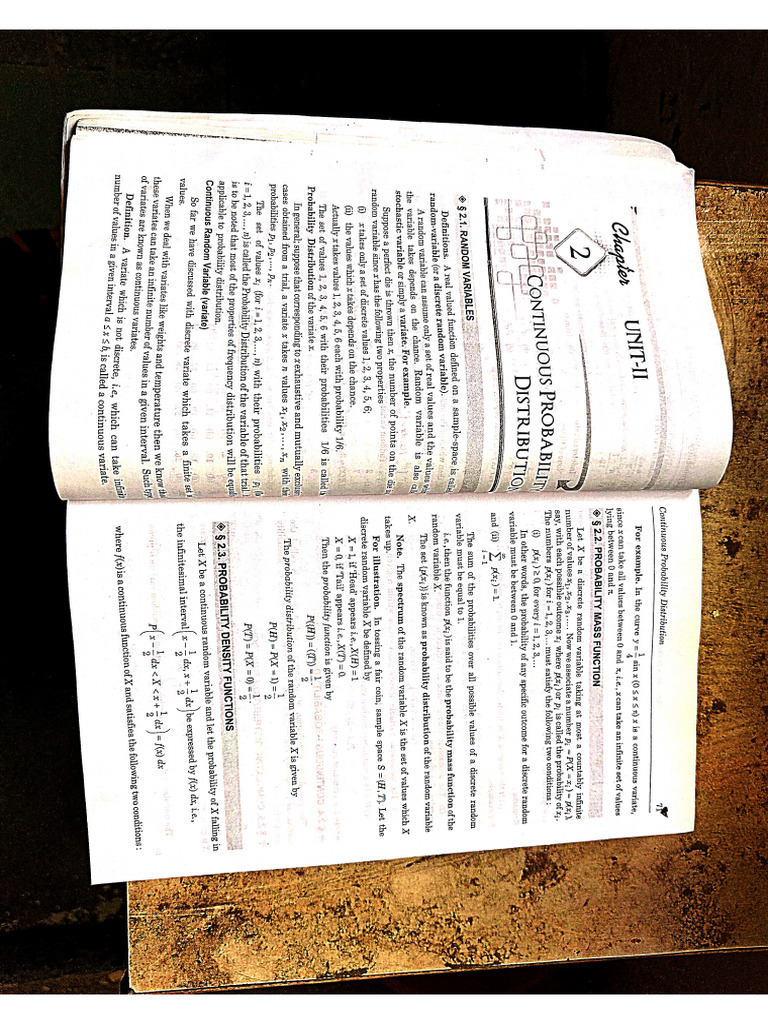 UNIT-II
Chapter
2
CONTINUOUS PROBABILITY
DISTRIBUTION
§ 2.1. RANDOM VARIABLES
Definitions. A real valued function defined on a sample-space is
random-variable (or a discrete random variable).
A random variable can assume only a set of real values and the values
the variable takes depends on the chance. Random variable is also
stochastic variable or simply a variate. For example.
Suppose a perfect die is thrown then x, the number of points on the die is
random variable since x has the following two properties
(i) x takes only a set of discrete values 1, 2, 3, 4, 5, 6;
(ii) the values which x takes depends on the chance.
Actually x takes values 1, 2, 3, 4, 5, 6 each with probability 1/6.
The set of values 1, 2, 3, 4, 5, 6 with their probabilities 1/6 is called
Probability Distribution of the variate x.
In general; suppose that corresponding to x exhaustive and mutually
cases obtained from a trial, a variate x takes n values x₁, x₂, ..., xₙ with
probabilities p₁, p₂, ..., pₙ.
The set of values xᵢ (for i = 1, 2, 3, ..., n) with their probabilities pᵢ
i = 1, 2, 3, ..., n) is called the Probability Distribution of the variable of that trial.
is to be noted that most of the properties of frequency distribution will be
applicable to probability distribution.
Continuous Random Variable (variate)
So far we have discussed with discrete variate which takes a finite set
values.
When we deal with variates like weights and temperature then we know
these variates can take an infinite number of values in a given interval. Such
of variates are known as continuous variates.
Definition. A variate which is not discrete, i.e., which can take
number of values in a given interval a ≤ x ≤ b, is called a continuous variate.
Continuous Probability Distribution
For example. In the curve y = 1/4 sin x (0 ≤ x ≤ π) x is a continuous variate,
since x can take all values between 0 and π, i.e., x can take an infinite set of values
lying between 0 and π.
§ 2.2. PROBABILITY MASS FUNCTION
Let X be a discrete random variable taking at most a countably infinite
number of values x₁, x₂, x₃, .... Now we associate a number pᵢ = P(X = xᵢ) = p(xᵢ),
say, with each possible outcome xᵢ, where p(xᵢ) or pᵢ is called the probability of xᵢ.
The numbers p(xᵢ) for i = 1, 2, 3, ... must satisfy the following two conditions :
(i) p(xᵢ) ≥ 0, for every i = 1, 2, 3, ...
In other words, the probability of any specific outcome for a discrete random
variable must be between 0 and 1.
and (ii) ∑ᵢ₌₁^∞ p(xᵢ) = 1.
The sum of the probabilities over all possible values of a discrete random
variable must be equal to 1.
i.e., then the function p(xᵢ) is said to be the probability mass function of the
random variable X.
The set {p(xᵢ)} is known as probability distribution of the random variable
X.
Note. The spectrum of the random variable X is the set of values which X
takes up.
For illustration. In tossing a fair coin, sample space S = {H, T}. Let the
discrete random variable X be defined by
X = 1, if 'Head' appears i.e., X(H) = 1
X = 0, if 'Tail' appears i.e., X(T) = 0.
Then the probability function is given by
P({H}) = ({T}) = 1/2.
The probability distribution of the random variable X is given by
P(H) = P(X = 1) = 1/2
P(T) = P(X = 0) = 1/2
§ 2.3. PROBABILITY DENSITY FUNCTIONS
Let X be a continuous random variable and let the probability of X falling in
the infinitesimal interval (x - 1/2 dx, x + 1/2 dx) be expressed by f(x) dx, i.e.,
P(x - 1/2 dx < X < x + 1/2 dx) = f(x) dx
where f(x) is a continuous function of X and satisfies the following two conditions :